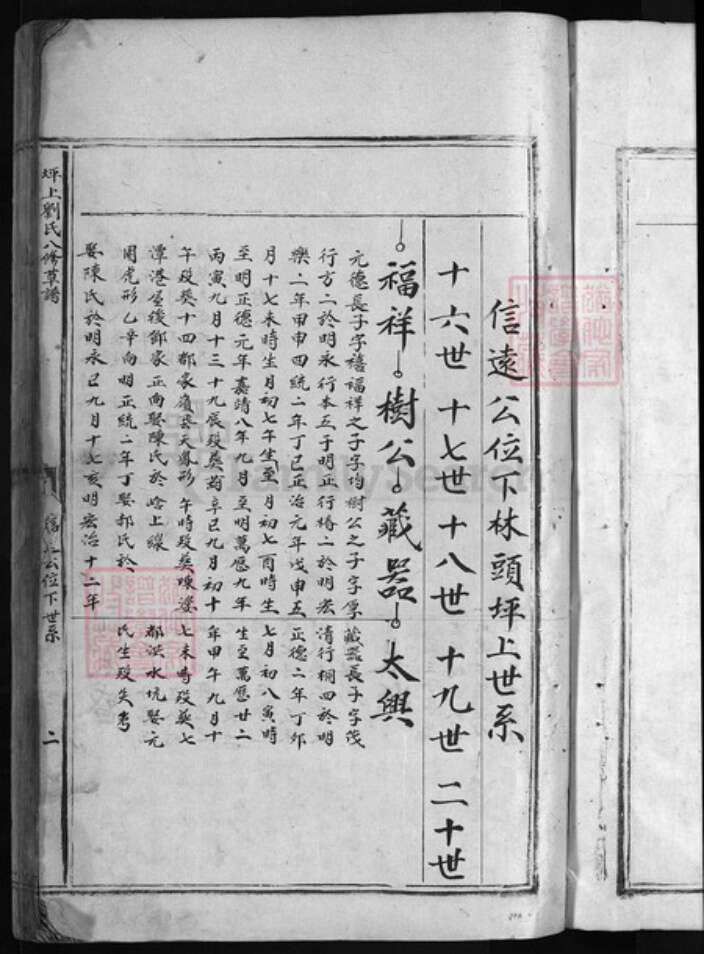 信遠公位下林頭坪上世系
十六世 十七世 十八世 十九世 二十世
福祥 樹公 藏器 太興
元德長子字禧 福祥之子字均 樹公之子字厚 藏器長子字茂
行方二於明永 行本五于明正 行椿二於明宏 清行桐四於明
樂二年甲申四 統二年丁巳正 治元年戊申五 正德二年丁卯
月十七未時生 月初七午生至 月初七酉時生 七月初八寅時
至明正德元年 嘉靖八年九月 至明萬歷九年 生至萬歷廿二
丙寅九月十三 十九辰歿葬 辛巳九月初十 年甲午九月十
午歿葬十四都 家 天鳳形 午時歿葬 七未時歿葬七
潭港屋後 鄧家正向娶陳 氏於 上線 都洪水坑娶元
周虎形乙辛向 明正統二年丁 娶郝氏於 氏生歿失考
娶陳氏於明永 巳九月十七亥 明宏治十二年
坪上劉氏八修草譜
公位下世系
二